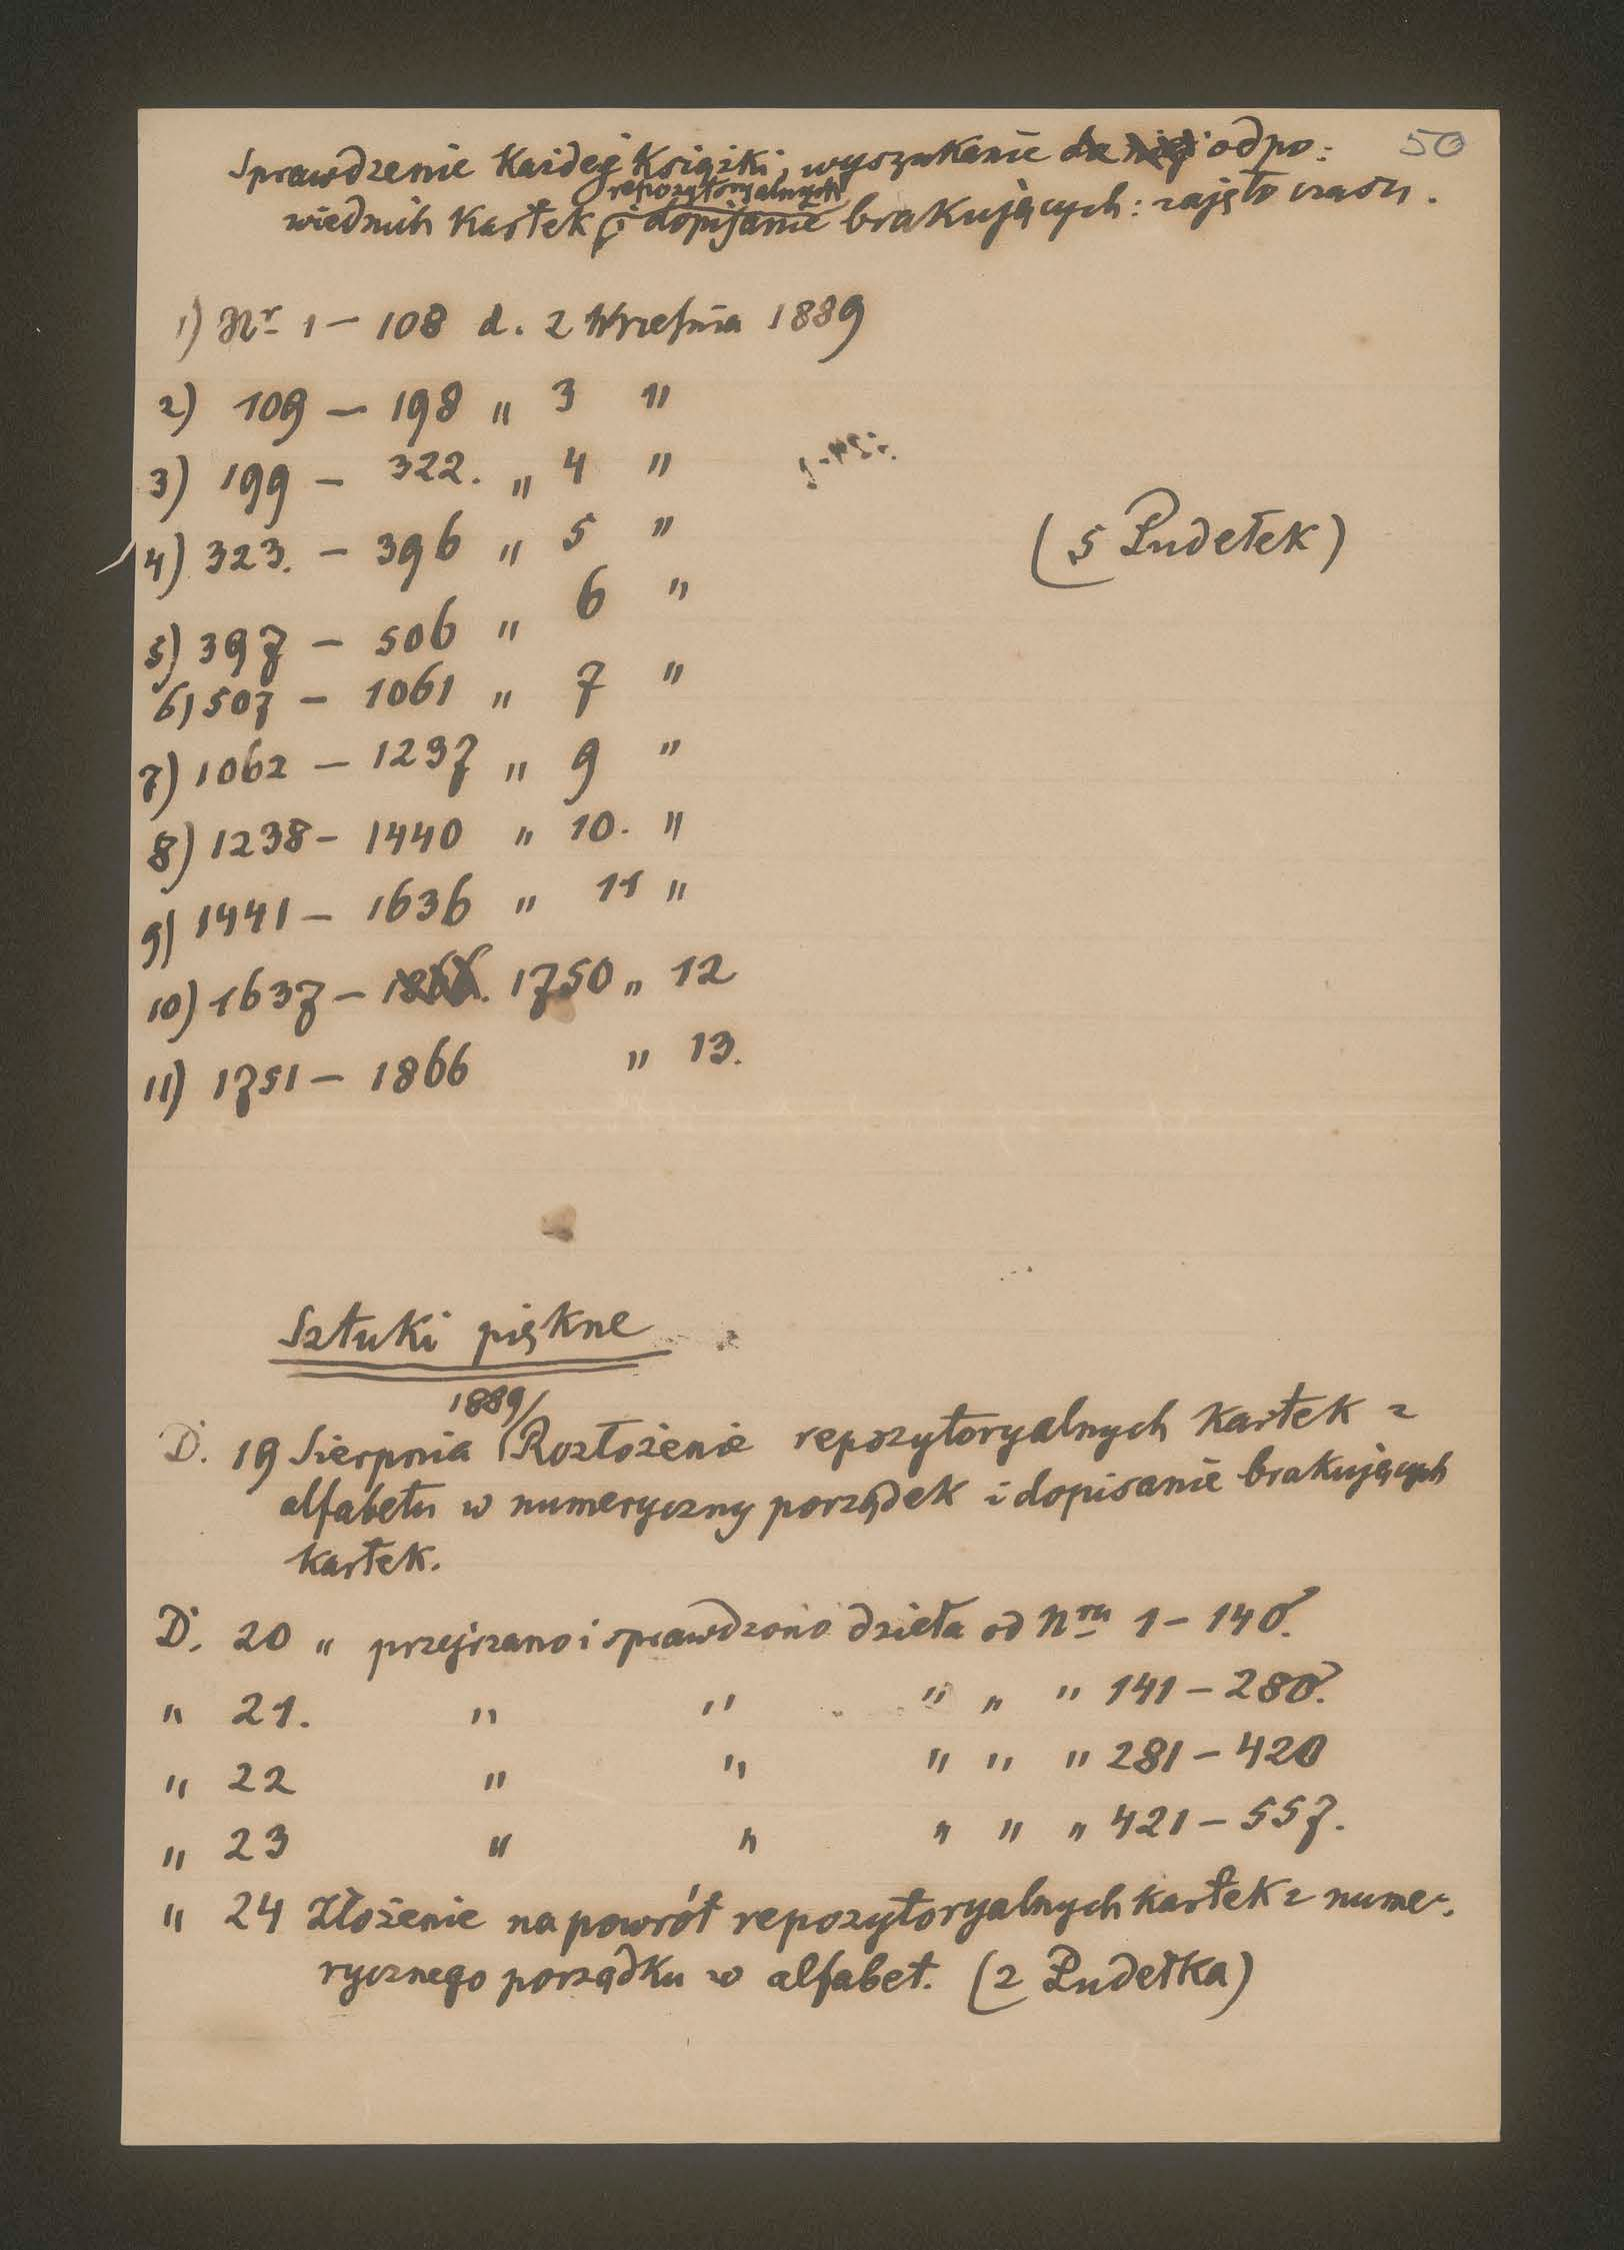 50
Sprawdzenie Każdej Książki, wyszukanie do niej odpo:
repozytoryalnych
wiednich Kartek i dopisanie brakujących: zajęto czasu.
1) Nr 1 – 108 d. 2 Września 1889
2) 109 – 198 „ 3 "
3) 199 – 322. „ 4 "
4) 323. – 396 „ 5 "
(5 Pudełek)
5) 397 – 506 „ 6 "
6) 507 – 1061 „ 7 "
7) 1062 – 1237 „ 9 "
8) 1238 – 1440 „ 10. "
9) 1441 – 1636 „ 11 "
10) 1637 – 1866. 1750 „ 12
11) 1751 – 1866 „ 13.
Sztuki piękne
1889/
D. 19 Sierpnia Rozłożenie repozytoryalnych Kartek z
alfabetu w numeryczny porządek i dopisanie brakujących
Kartek.
D. 20 „ przejrzano i sprawdzono dzieła od Nru 1 – 140.
„ 21. " " " „ " 141 – 280.
„ 22 " " " " " 281 – 420
„ 23 " " " " " 421 – 557.
„ 24 Złożenie na powrót repozytoryalnych Kartek z nume-
rycznego porządku w alfabet. (2 Pudełka)